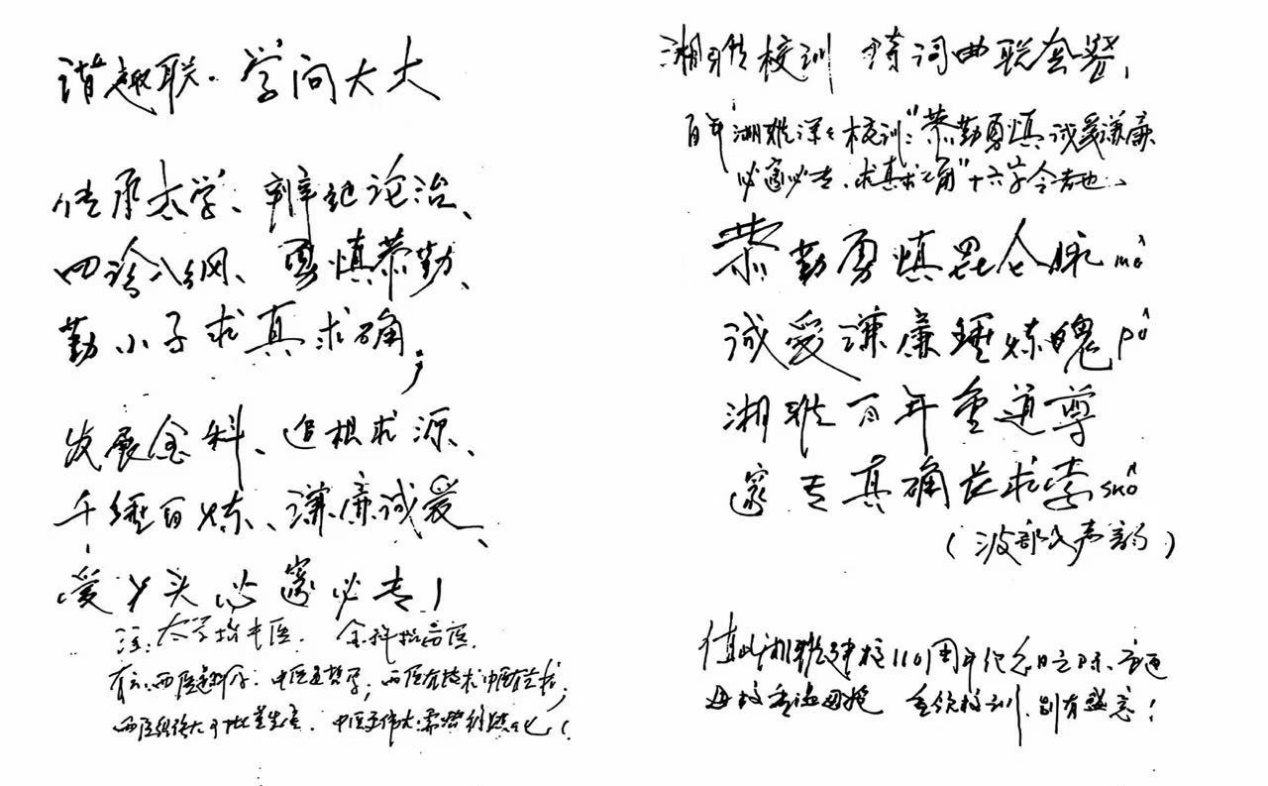 谐趣联·学问大大
传承太学、辩记论治、
四诊八纲、勇慎恭勤、
勤小子求真求确;
发展全科、追根求源、
千锤百炼、谦廉诚爱、
爱丫头必邃必专!
注:太学指中医. 全科指西医.
西医 中医通哲学; 西医有技术中医有艺术;
西医 中医更伟大
湘雅校训 诗词曲联会餐,
百年湘雅深之校训:"恭勤勇慎 诚爱谦廉
必邃必专. 求真求确"十六字令者也、
恭勤勇慎昆仑脉mò
诚爱谦廉锤炼魄pò
湘雅百年重道尊
邃专真确长求索suǒ
(波部仄声韵)
值此湘雅建校110周年纪念日之际.
母校 重领校训. 别有感慨!